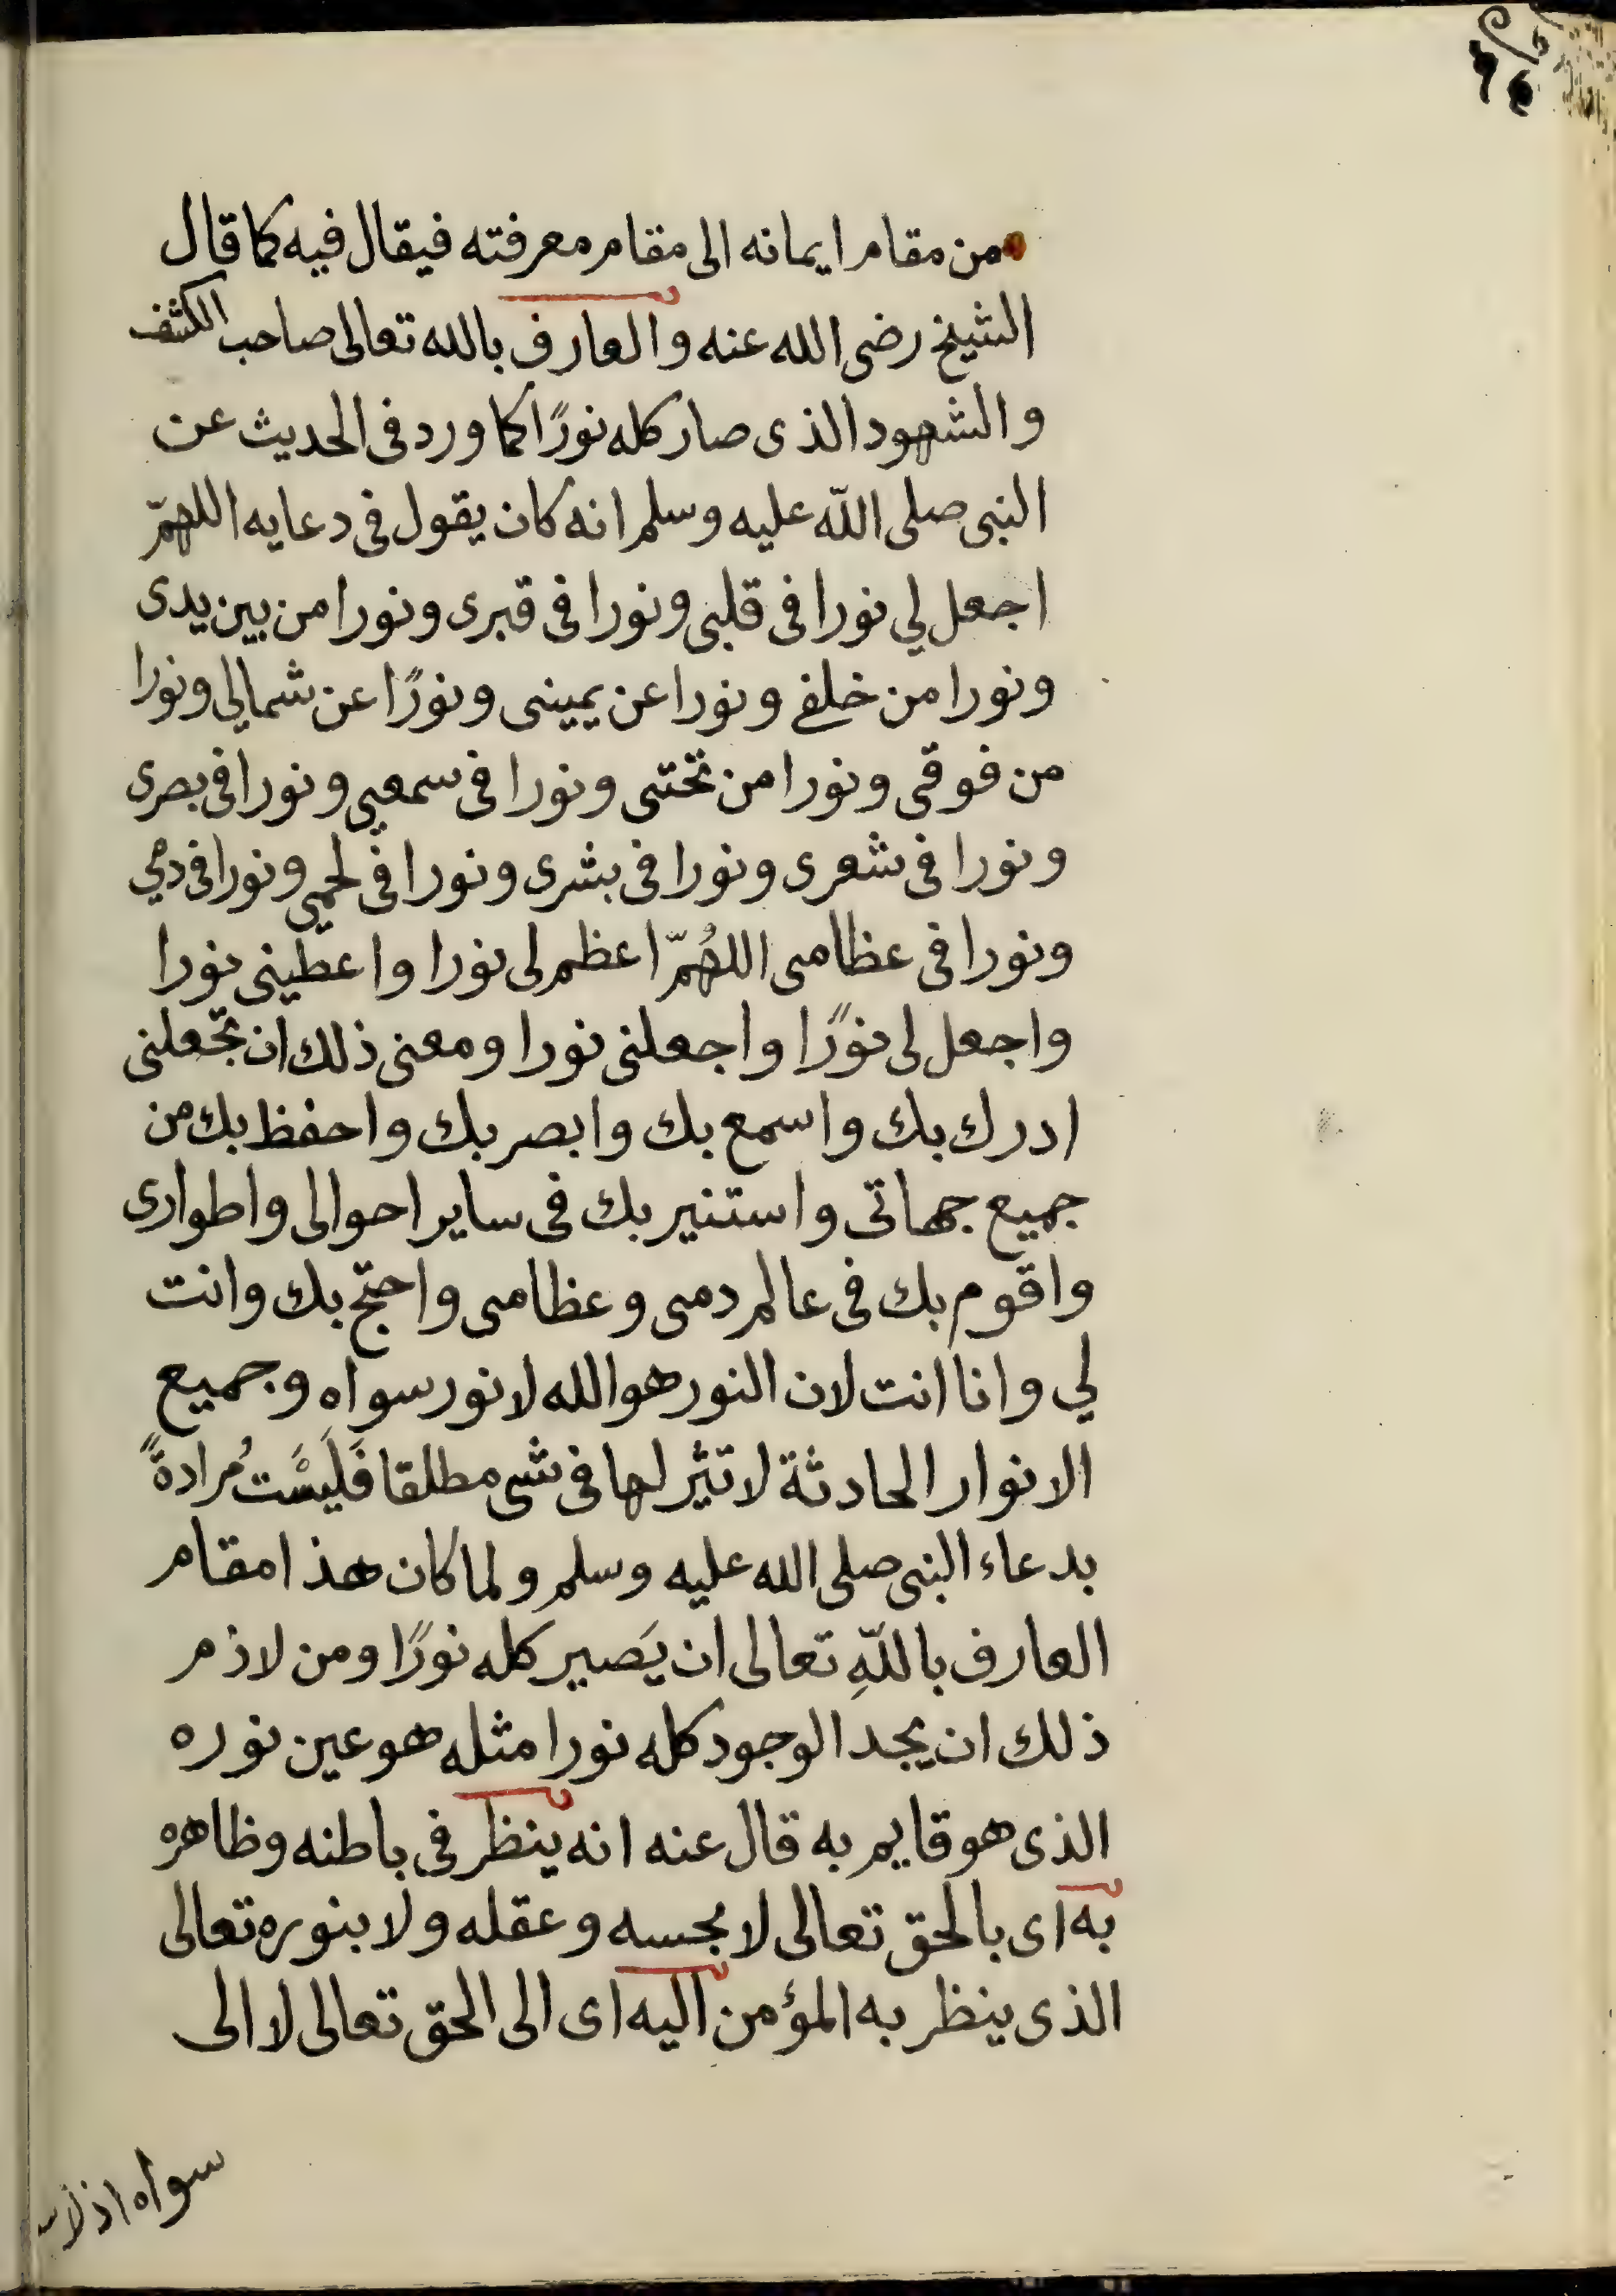 من مقام ايمانه الى مقام معرفته فيقال فيه كما قال
الشيخ رضى الله عنه والعارف بالله تعالى صاحب الكشف
والشهود الذى صار كله نورًا كما ورد فى الحديث عن
النبى صلى اللّه عليه وسلم انه كان يقول فى دعايه اللهمّ
اجعل لي نورا فى قلبى ونورا فى قبرى ونورا من بين يدى
ونورا من خلفى ونورا عن يمينى ونورًا عن شمالي ونورا
من فوقى ونورا من تختى ونورا فى سمعي ونورا فى بصرى
ونورا فى شعرى ونورا فى بشرى ونورا فى لحمي ونورا فى دمي
ونورا فى عظامى اللهُمّ اعظم لى نورا واعطينى نورا
واجعل لى نورًا واجعلنى نورا ومعنى ذلك ان تجعلنى
ادرك بك واسمع بك وابصر بك واحفظ بك من
جميع جهاتى واستنير بك فى ساير احوالى واطوارى
واقوم بك فى عالم دمى وعظامى واحتج بك وانت
لي وانا انت لان النور هو الله لا نور سواه وجميع
الانوار الحادثة لا تثير لها فى شى مطلقا فَلَيسَْت مُرادةً
بدعاء النبى صلى الله عليه وسلم ولما كان هذا مقام
العارف باللّهِ تعالى ان يَصير كله نورًا ومن لازم
ذلك ان يجد الوجود كله نورا مثله هو عين نوره
الذى هو قايم به قال عنه انه ينظر فى باطنه وظاهره
به اى بالحق تعالى لا بحسه وعقله ولا بنوره تعالى
الذى ينظر به المؤمن اليه اى الى الحق تعالى لا الى
سواه اذ لا